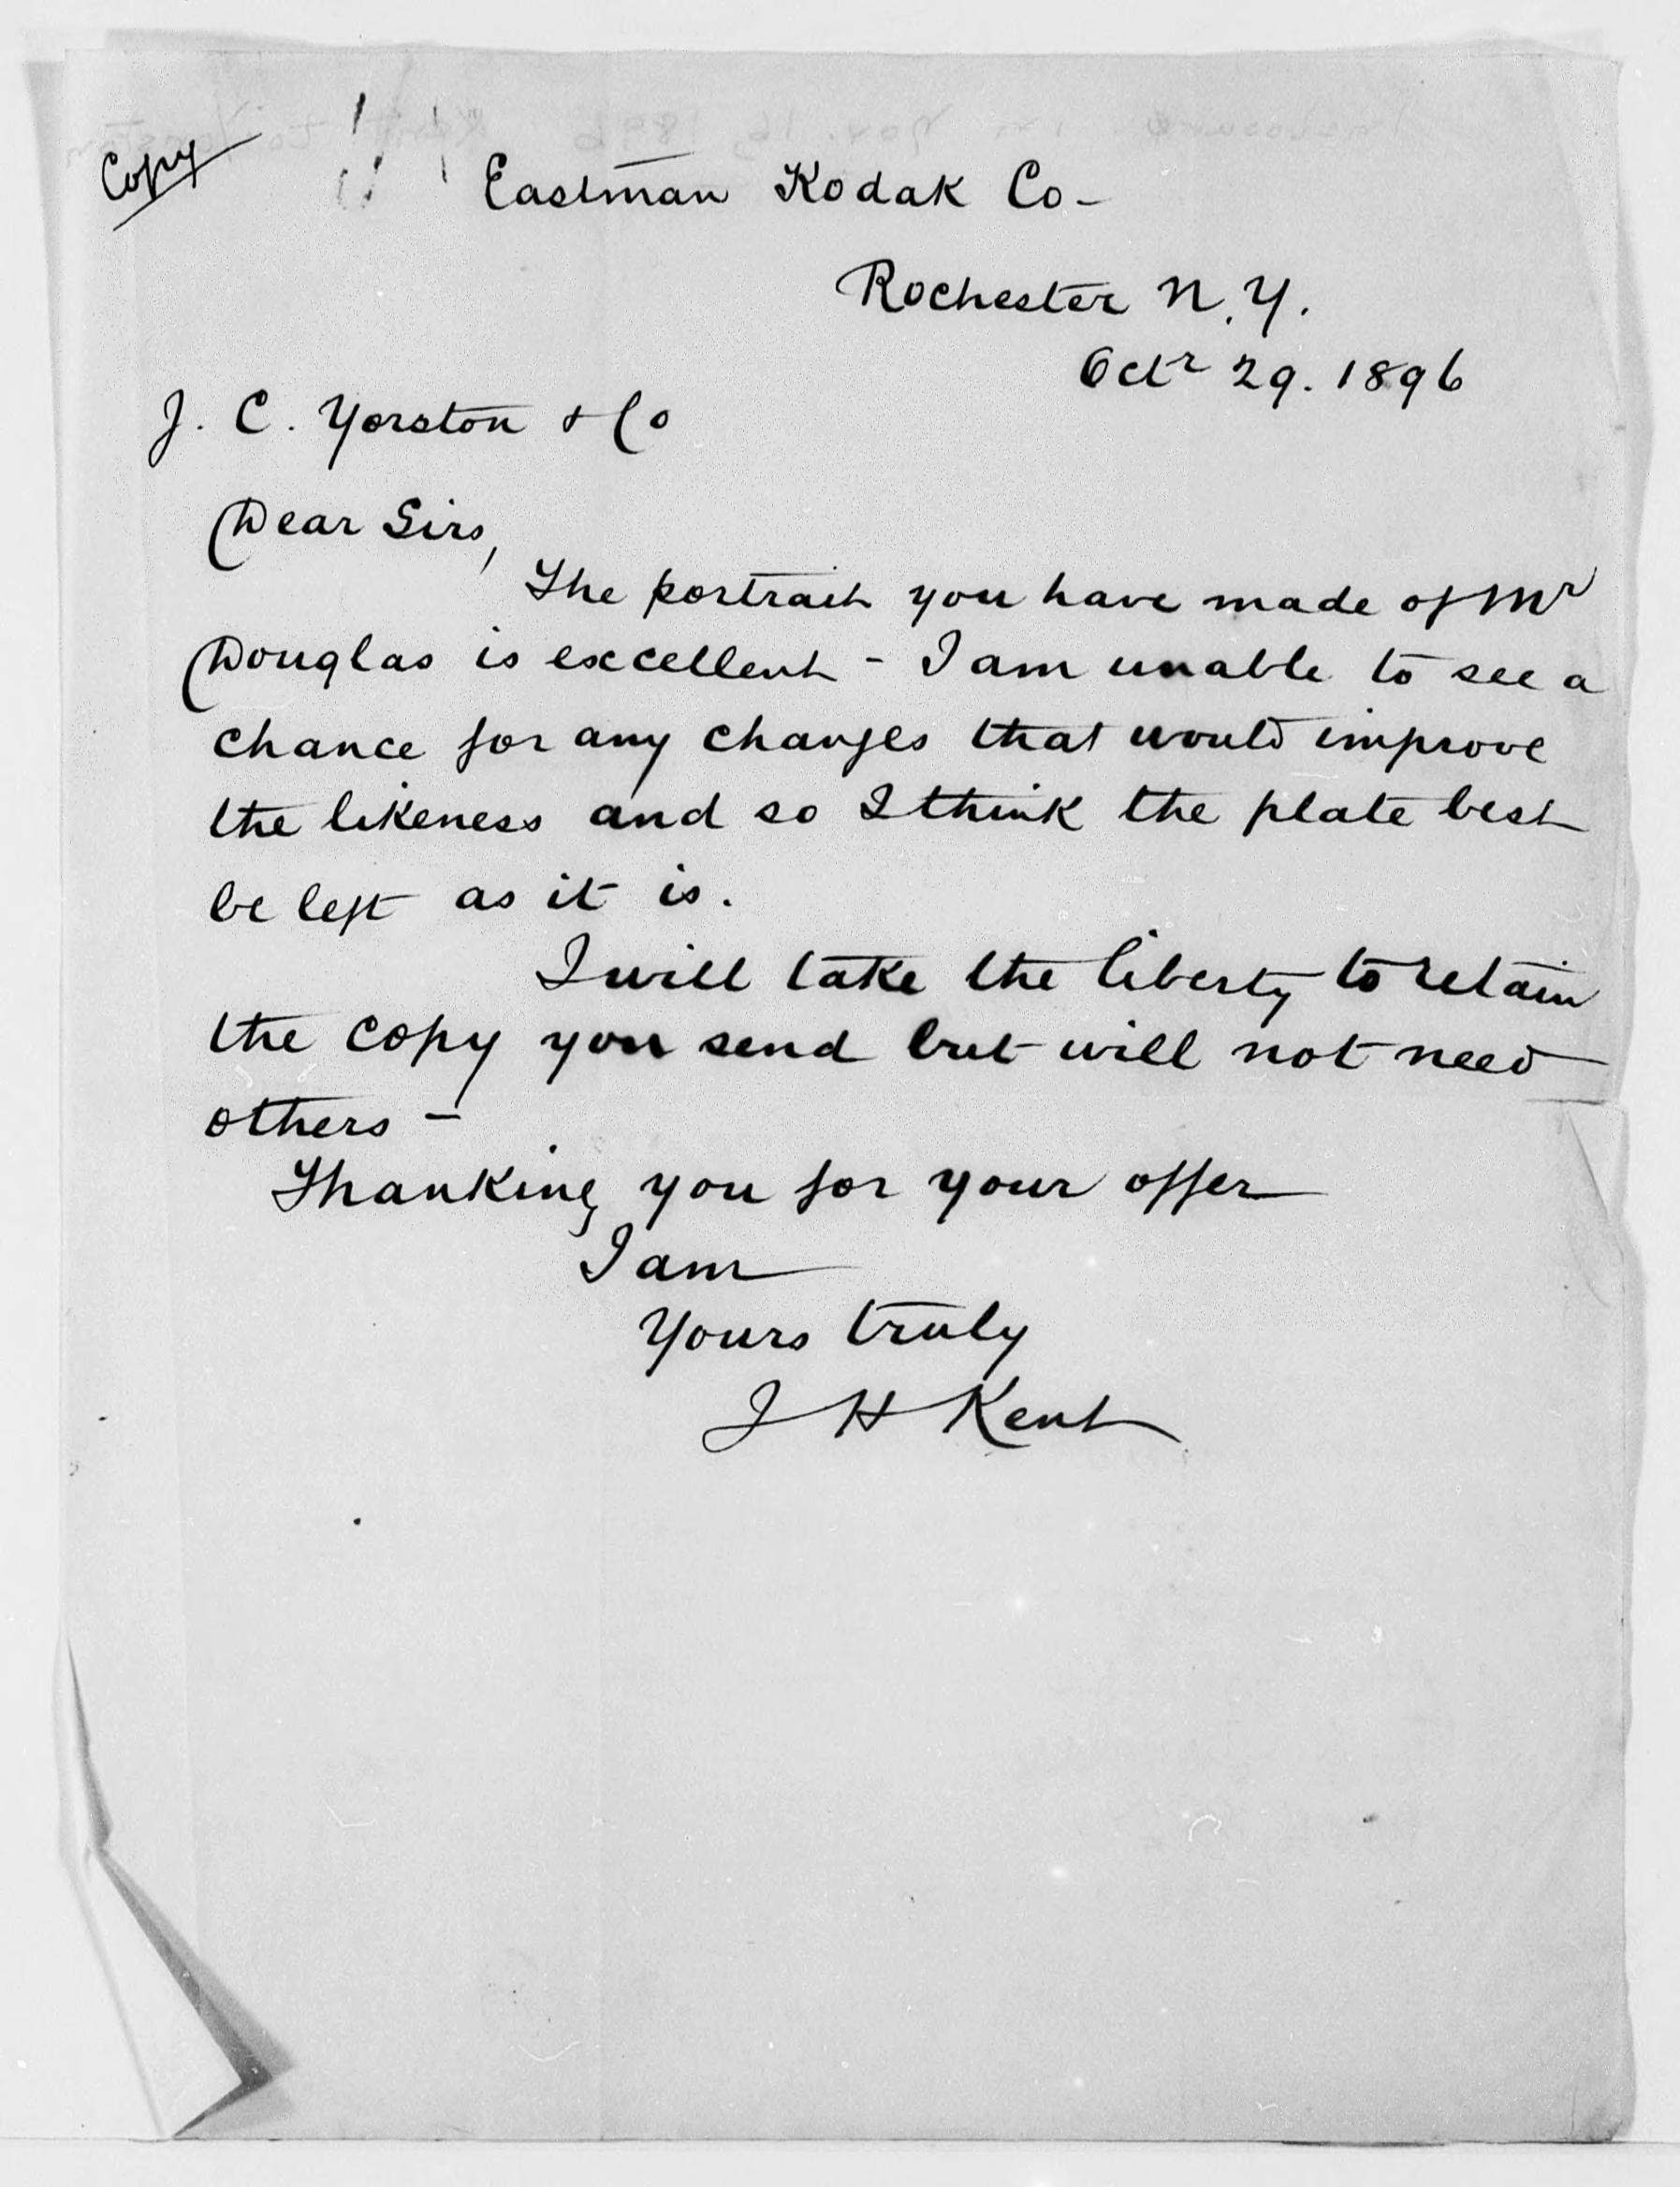 Copy
Eastman Kodak Co-
Rochester N.Y.
Octr 29. 1896
J. C. Yorston & Co
Dear Sirs,
The portrait you have made of Mr
Douglas is excellent - I am unable to see a
chance for any changes that would improve
the likeness and so I think the plate best
be left as it is.
I will take the liberty to retain
the copy you send but will not need
others -
Thanking you for your offer
I am
Yours truly
J H Kent